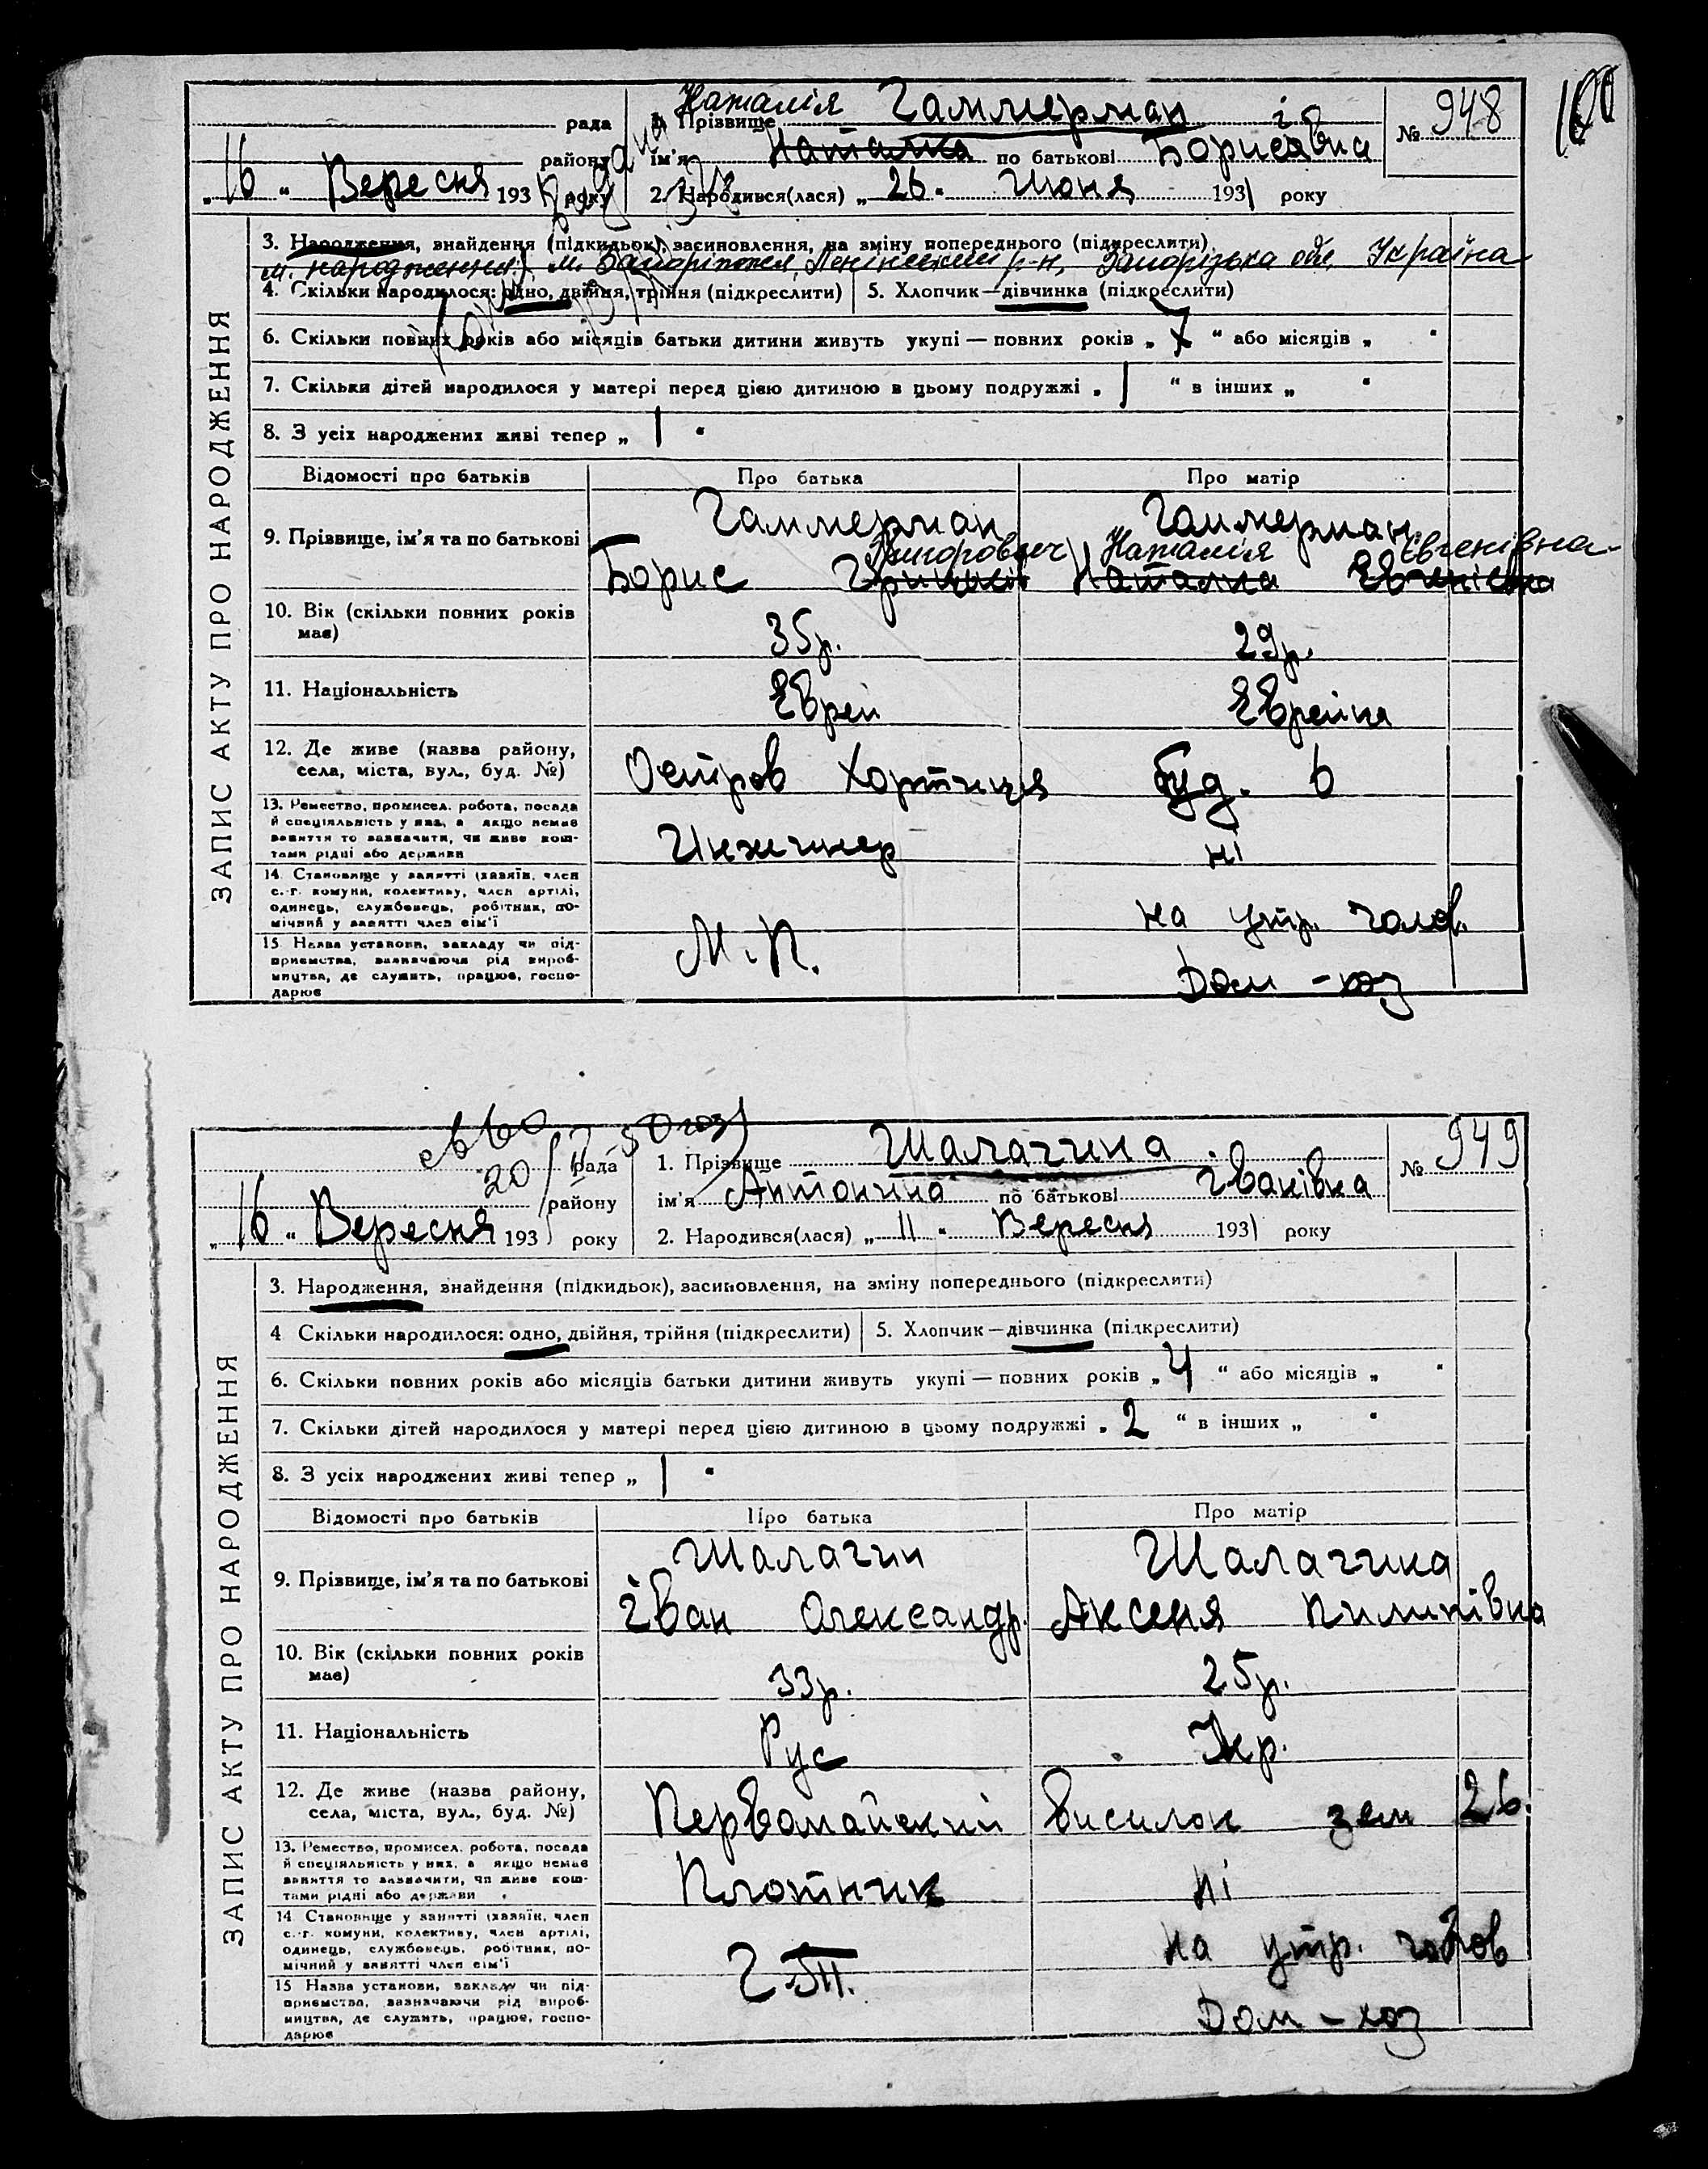 100
Наталія Гаммерман
рада
1. Прізвище
№ 948
району
ім'я Наталка по батькові Борисівна
„16“ Вересня 193 року
2. Народився(лася) „26“ Июня 1931 року
ЗАПИС АКТУ ПРО НАРОДЖЕННЯ
3. Народження, знайдення (підкидьок), засиновлення, на зміну попереднього (підкреслити)
м. народження: м. Запоріжжя, Ленінський р-н, Запорізька обл. Україна
4. Скільки народилося: одно, двійня, трійня (підкреслити) 5. Хлопчик—дівчинка (підкреслити)
6. Скільки повних років або місяців батьки дитини живуть укупі — повних років „7“ або місяців „ “
7. Скільки дітей народилося у матері перед цією дитиною в цьому подружжі „1“ в інших „ “
8. З усіх народжених живі тепер „1“
Відомості про батьків Про батька Про матір
Гаммерман Гаммерман
9. Прізвище, ім'я та по батькові
Григорович Наталія Євгенівна
Борис Наталка Евгенівна
10. Вік (скільки повних років має) 35р. 29р.
11. Національність Еврей Еврейка
12. Де живе (назва району, села, міста, вул., буд. №) Остров Хортиця буд. 6
13. Ремество, промисел, робота, посада
й спеціяльність у них, а якщо немає
заняття то зазначити, чи живе кош-
тами рідні або держави
Инжинер ні
14. Становище у занятті (хазяїн, член
с.-г. комуни, колективу, член артілі,
одинець, службовець, робітник, по-
мічний у занятті член сім'ї
на утр. голов.
15. Назва установи, закладу чи під-
приємства, зазначаючи рід вироб-
ництва, де служить, працює, госпо-
дарює
М.П. Дом-хоз
рада
1. Прізвище Шалагина
№ 949
20
району
ім'я Антонина по батькові Іванівна
„16“ Вересня 193 року
2. Народився(лася) „11“ Вересня 1931 року
ЗАПИС АКТУ ПРО НАРОДЖЕННЯ
3. Народження, знайдення (підкидьок), засиновлення, на зміну попереднього (підкреслити)
4 Скільки народилося: одно, двійня, трійня (підкреслити) 5. Хлопчик—дівчинка (підкреслити)
6. Скільки повних років або місяців батьки дитини живуть укупі — повних років „4“ або місяців „ “
7. Скільки дітей народилося у матері перед цією дитиною в цьому подружжі „2“ в інших „ “
8. З усіх народжених живі тепер „1“
Відомості про батьків Про батька Про матір
Шалагин Шалагина
9. Прізвище, ім'я та по батькові
Іван Олександр. Аксеня Пилипівна
10. Вік (скільки повних років має) 33р. 25р.
11. Національність Рус Укр.
12. Де живе (назва району, села, міста, вул., буд. №) Первомайский висилок зем 26.
13. Ремество, промисел, робота, посада
й спеціяльність у них, а якщо немає
заняття то зазначити, чи живе кош-
тами рідні або держави
Плотник ні
14 Становище у занятті (хазяїн, член
с.-г. комуни, колективу, член артілі,
одинець, службовець, робітник, по-
мічний у занятті член сім'ї
на утр. голов
15 Назва установи, закладу чи під-
приємства, зазначаючи рід вироб-
ництва, де служить, працює, госпо-
дарює
Дом-хоз